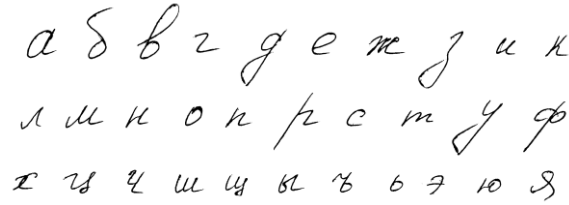 а б в г д е ж з и к
л м н о п р с т у ф
х ц ч ш щ ы ъ ь э ю я